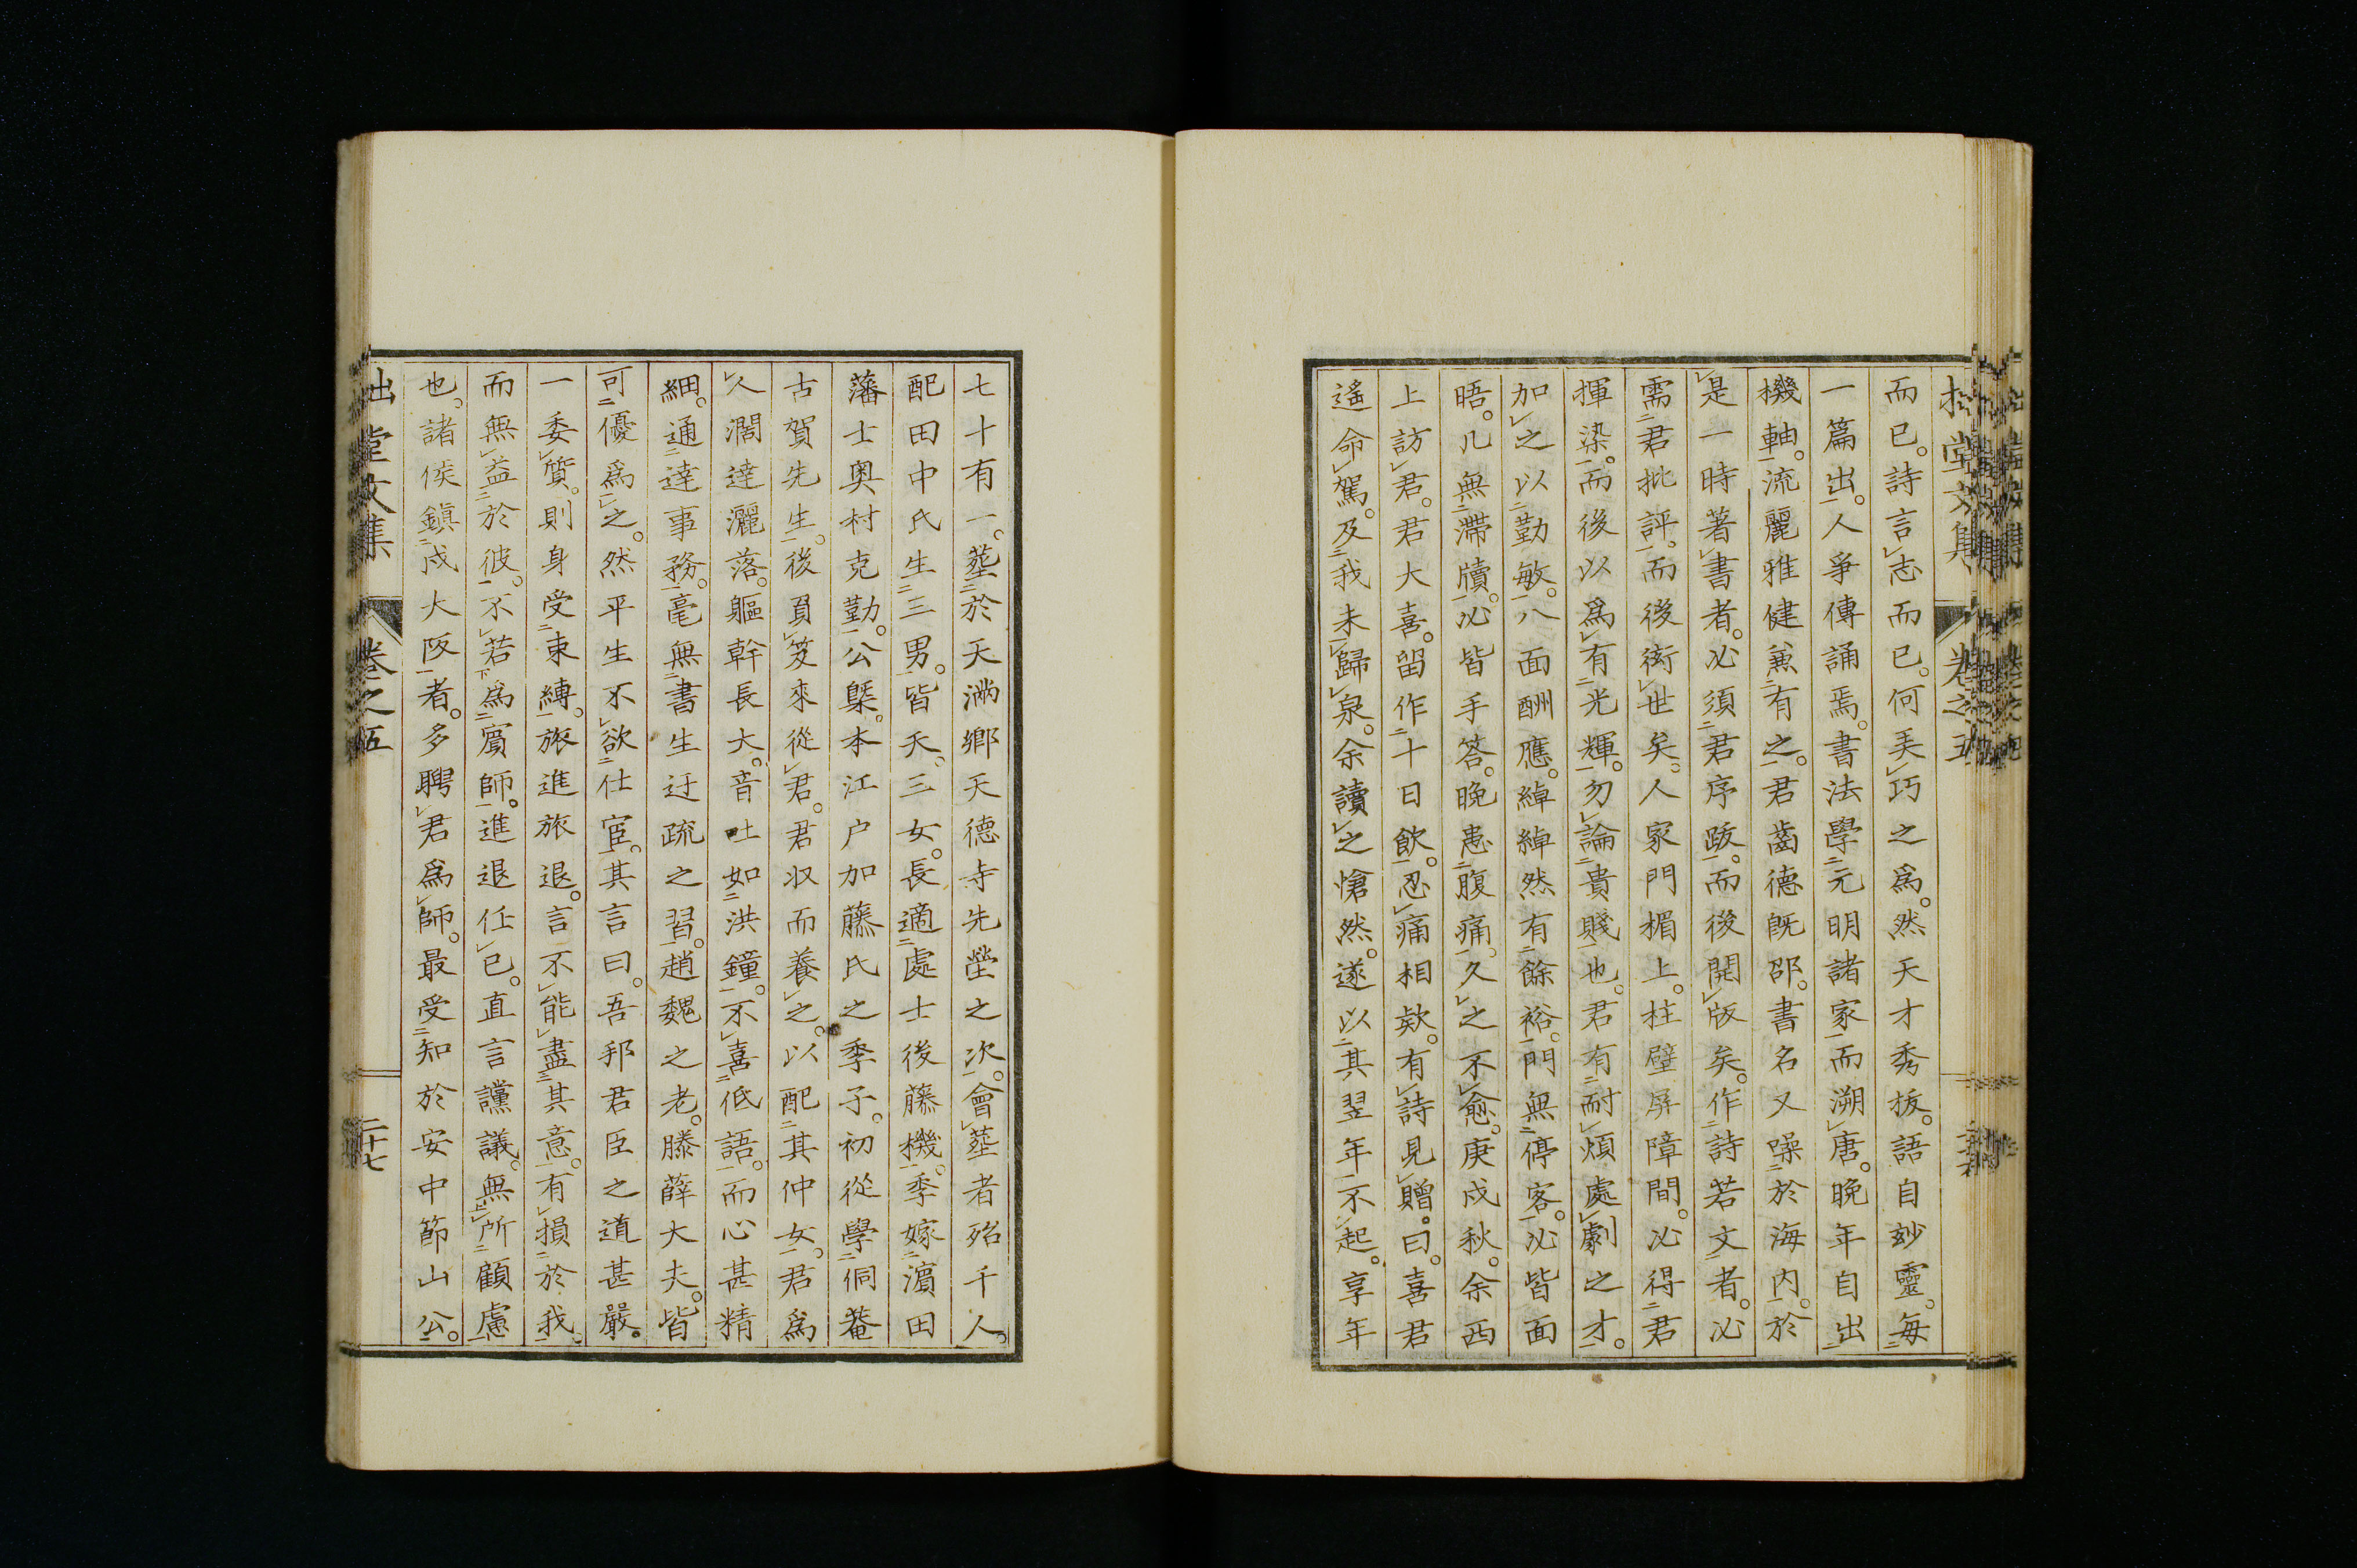 拙堂文集 卷之五
而已。詩言志而已。何美巧之爲。然天才秀拔。語自玅靈。每
一篇出。人爭傳誦焉。書法學元明諸家而溯唐。晩年自出
機軸。流麗雅健兼有之。君齒德旣邵。書名又噪於海內。於
是一時著書者。必須君序跋。而後開版矣。作詩若文者。必
需君批評。而後衒世矣。人家門楣上。柱壁屏障間。必得君
揮染。而後以爲有光輝。勿論貴賤也。君有耐煩處劇之才。
加之以勤敏。八面酬應。綽綽然有餘裕。門無停客。必皆面
晤。儿無滯牘。必皆手答。晩患腹痛。久之不愈。庚戍秋。余西
上訪君。君大喜。留作十日飮。忍痛相欵。有詩見贈。曰。喜君
遙命駕。及我未歸泉。余讀之愴然。遂以其翌年不起。享年
七十有一。塟於天滿鄉天德寺先塋之次。會塟者殆千人。
配田中氏生三男。皆夭。三女。長適處士後藤機。季嫁濵田
藩士奥村克勤。公槩。本江户加藤氏之季子。初從學侗菴
古賀先生。後負笈來從君。君收而養之。以配其仲女。君爲
人濶達灑落。軀幹長大。音吐如洪鐘。不喜低語。而心甚精
細。通達事務。毫無書生迂疏之習。趙魏之老。滕薛大夫。皆
可優爲之。然平生不欲仕宦。其言曰。吾邦君臣之道甚嚴。
一委質。則身受束縛。旅進旅退。言不能盡其意。有損於我
而無益於彼。不若爲賓師。進退任已。直言讜議。無所顧慮
也。諸侯鎭戍大阪者。多聘君爲師。最受知於安中節山公。
拙堂文集 卷之五 二十七